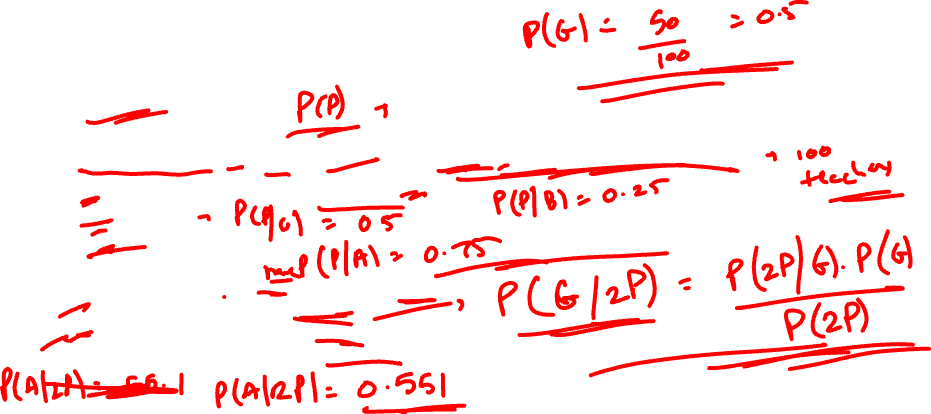 P(G) = 50/100 = 0.5
P(P)
→ 100
teachers
P(P/G) = 0.5
P(P/B) = 0.25
P(P/A) = 0.75
P(G/2P) = P(2P/G). P(G) / P(2P)
P(A|2P) = 0.551